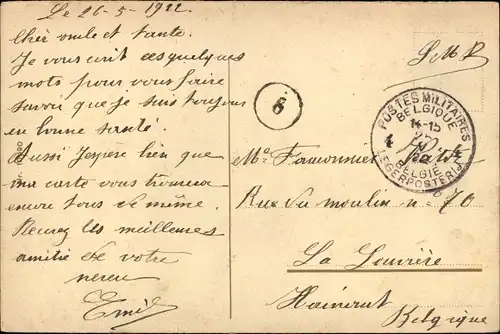 Le 26-5-1922
Cher oncle et tante.
Je vous écrit ces quelques
mots pour vous faire
savoir que je suis toujours
en bonne santé.
Aussi J'espère bien que
ma carte vous trouvera
encore tous de même.
Recevez les meilleures
amitié de votre
neveu
Emile
S.M.B
6
POSTES MILITAIRES
BELGIQUE
14-15
4
BELGIE
LEGERPOSTERIJ
Rue du moulin n° 70
La Louvière
Hainaut
Belgique